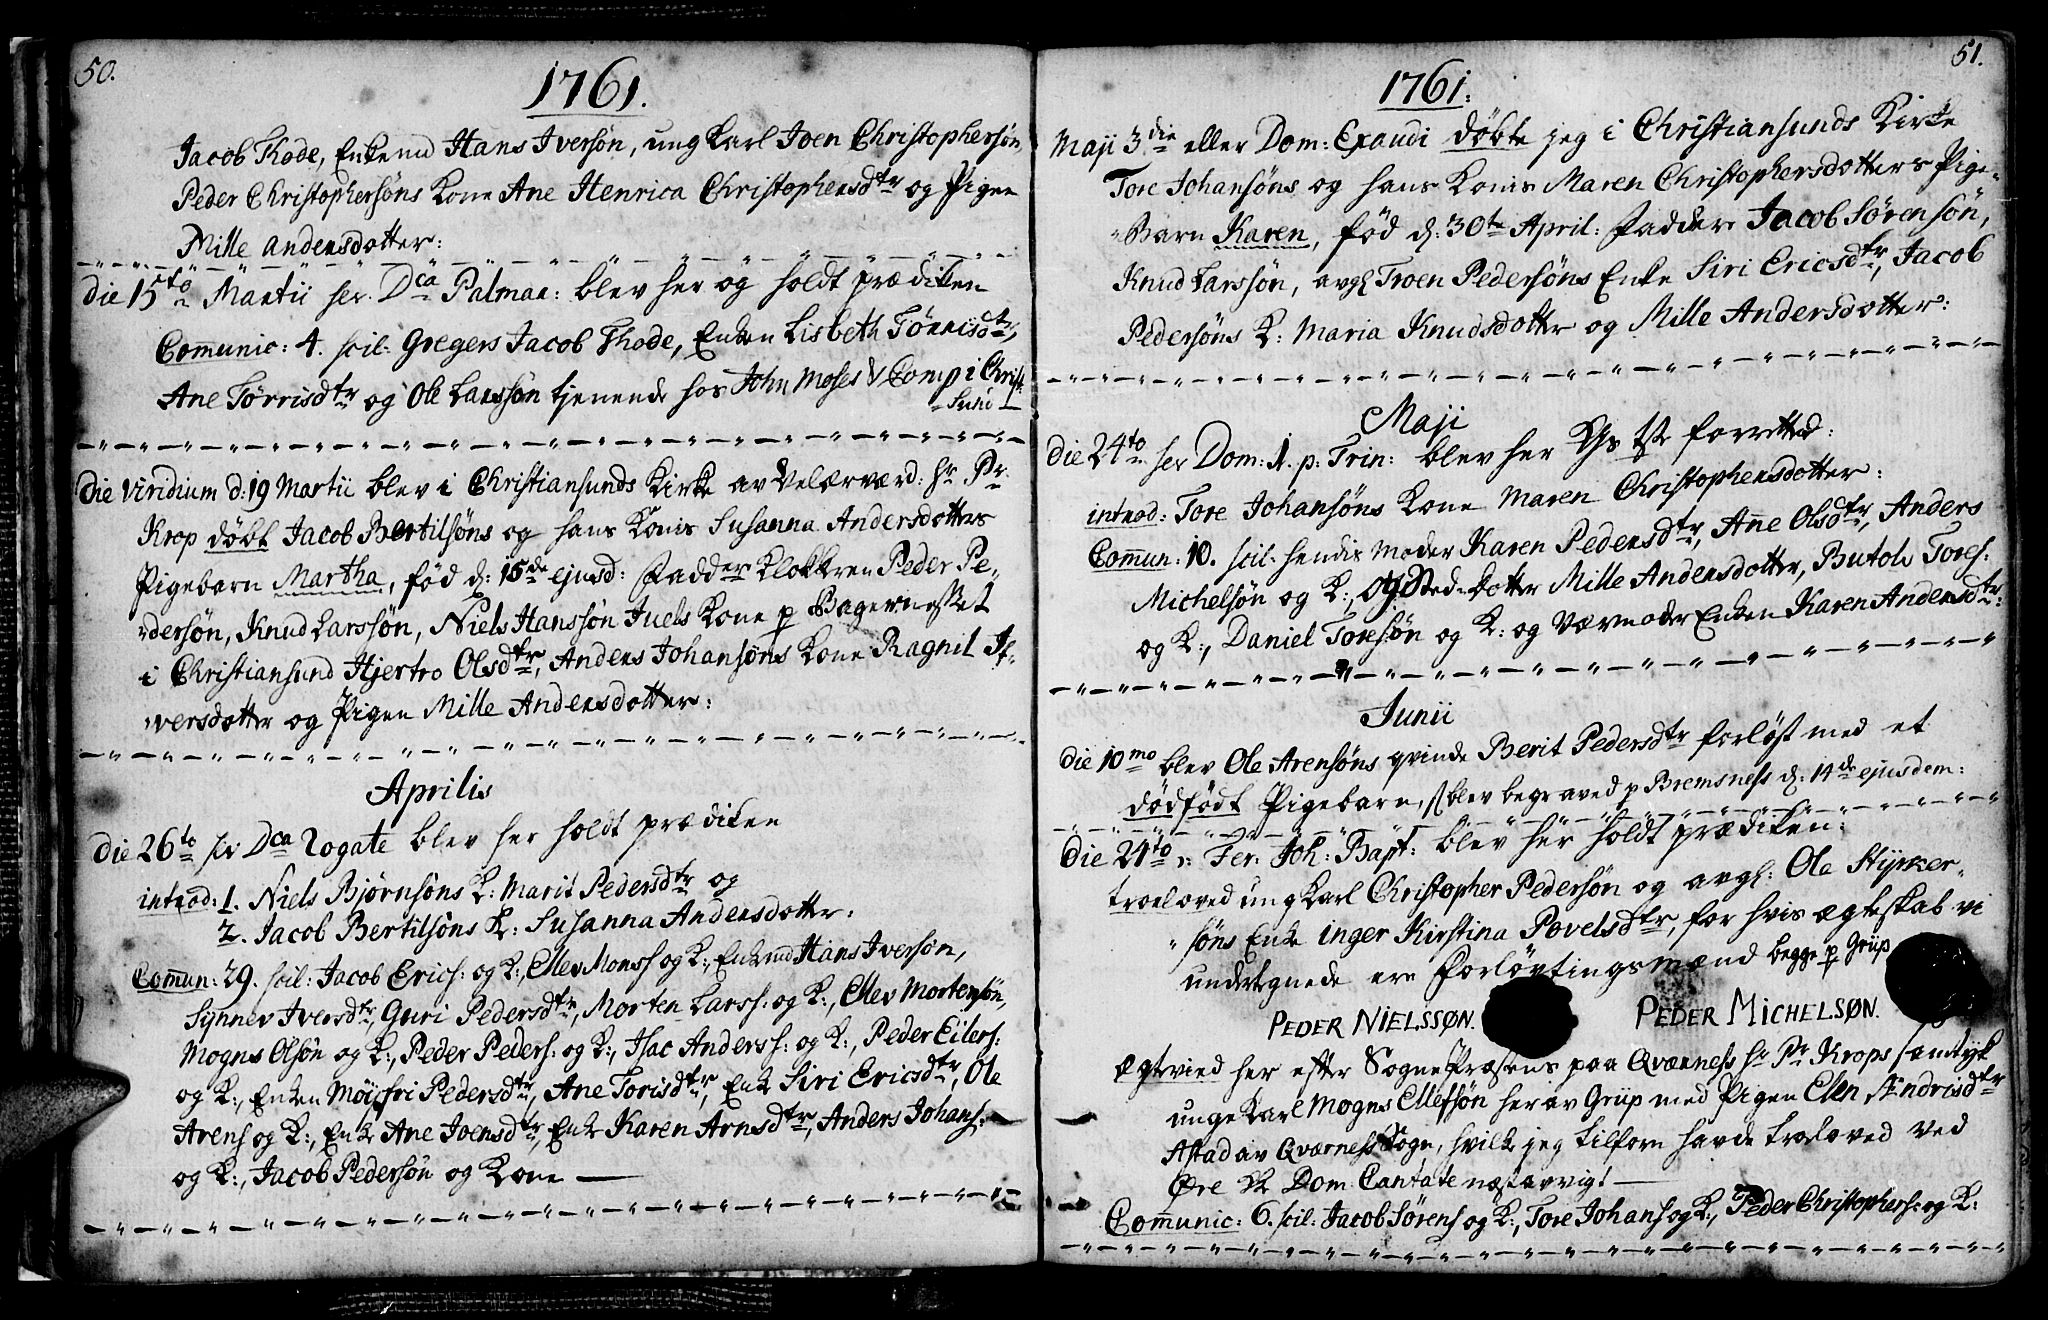 50.
1761.
Jacob Thode, Enkemd Hans Iversøn, ung Karl Joen Christophersøn,
Peder Christophersøns Kone Ane Henrica Christophersdtr og Pigen
Mille Andersdotter:
die 15to Martii ser. Dca Palmar: blev her og holdt prædiken
Comunic: 4. scil: Gregers Jacob Thode, Enken Lisbeth Tørrisdtr,
Ane Tørrisdtr og Ole Larssøn tjenende hos John Moses & Comp i Christ-
Sund
die Viridium d: 19 Martii blev i Christiansunds Kirke av Velærværd: Hr Pr
Krop døbt Jacob Bertilsøns og hans Konis Susanna Andersdotters
Pigebarn Martha, fød d: 15de ejusd: Fadder Klokkeren Peder Pe-
dersøn, Knud Larssøn, Niels Hanssøn Juels Kone p Bagernesset
i Christiansund Hjertro Olsdtr, Anders Johansøns Kone Ragnil I-
versdotter og Pigen Mille Andersdotter:
Aprilis
die 26to ser Dca Rogate blev her holdt prædiken
introd: 1. Niels Bjørnsøns K: Marit Pedersdtr og
2. Jacob Bertilsøns K: Susanna Andersdotter:
Comun: 29. scil: Jacob Erics: og K:, Ellev Monss og K:, Enkemd Hans Iversøn,
Syhnev Iversdtr, Guri Pedersdtr, Morten Larss: og K:, Ellev Mortensøn,
Mogns Olsøn og K:, Peder Peders: og K:, Isac Anderss: og K:, Peder Eilers:
og K:, Enken Pedersdtr, Ane Torisdtr, Enke Siri Ericsdtr, Ole
Arens og K:, Enke Ane Joensdtr, Enke Karen Arnsdtr, Anders Johans:
og K:, Jacob Pedersøn og Kone
51.
1761.
Maji 3die eller Dom: Exaudi døbte jeg i Christiansunds Kirke
Tore Johansøns og hans Konis Maren Christophersdotters Pige-
Barn Karen, fød d: 30te April: Fadder Jacob Sørensøn,
Knud Larssøn, avgl Troen Pedersøns Enke Siri Ericsdtr, Jacob
Pedersøns K: Maria Knudsdotter og Mille Andersdotter:
Maji
die 24to ser Dom: 1. p: Trin: blev her forrettad:
introd: Tore Johansøns Kone Maren Christophersdotter:
Comun: 10. scil: hendis Moder Karen Pedersdtr, Ane Olsdtr, Anders
Michelsøn og K:, og Sted-dotter Mille Andersdotter, Butolv Tores:
og K:, Daniel Toresøn og K: og Værmoder Enken Karen Andersdtr:
Junii
die 10mo blev Ole Arensøns qvinde Berit Pedersdtr forløst med et
dødfødt Pigebarn, blev begraved p Bremsness d: 14de ejusdem:
die 24to Fer: Joh: Bapt: blev her holdt prædiken:
troeloved ung Karl Christopher Pedersøn og avgl: Ole Styrker-
søns Enke Inger Kirstina Povelsdtr, for hvis ægteskab vi
undertegnede ere Forløvtingsmænd begge p Griip
PEDER NIELSSØN. PEDER MICHELSØN.
Ægtvied her efter SognePræstens paa Qværness Hr Pr Krops samtyk
unge Karl Mogns Ellefsøn her av Griip med Pigen Elen Andrisdtr
Astad av Qværness Sogn, hvilke jeg tilforn havde troeloved ved
Øre K Dom Cantate næstavvigt
Comunic: 6. scil: Jacob Sørens og K:, Tore Johans og K:, Peder Christophers: og K: